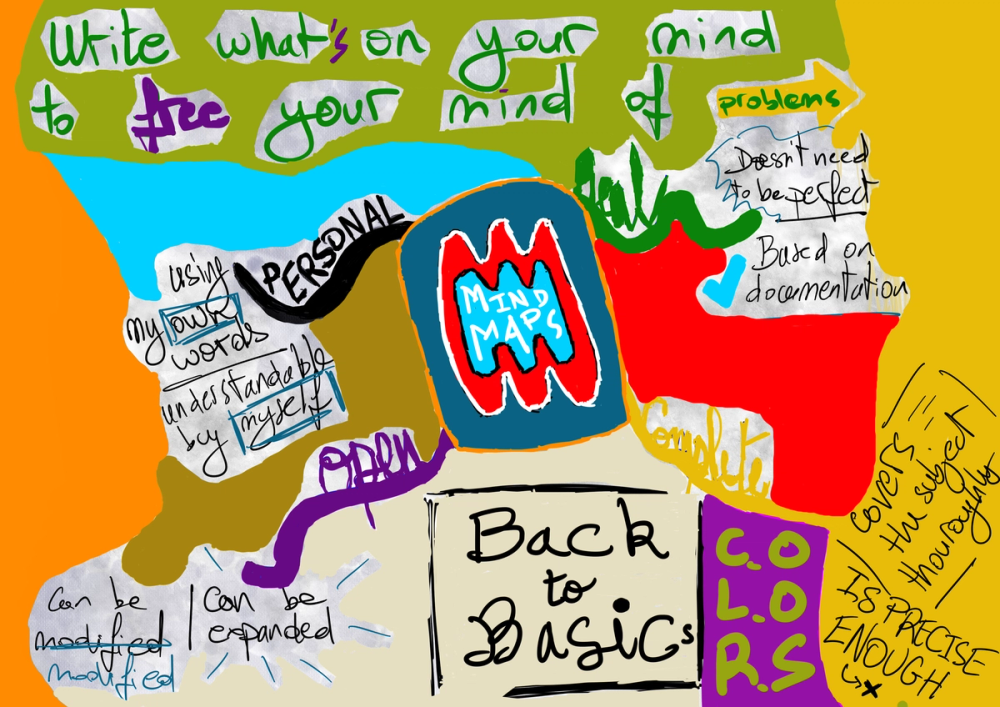 Write what's on your mind
to free your mind of problems
Doesn't need
to be perfect
Based on
documentation
PERSONAL
using
my own
words
understandable
by myself
MIND
MAPS
Complete
covers
the subject
thouroughly
IS PRECISE
ENOUGH
OPEN
Can be
modified
modified
Can be
expanded
Back
to
Basics
C.O
L.O
R.S